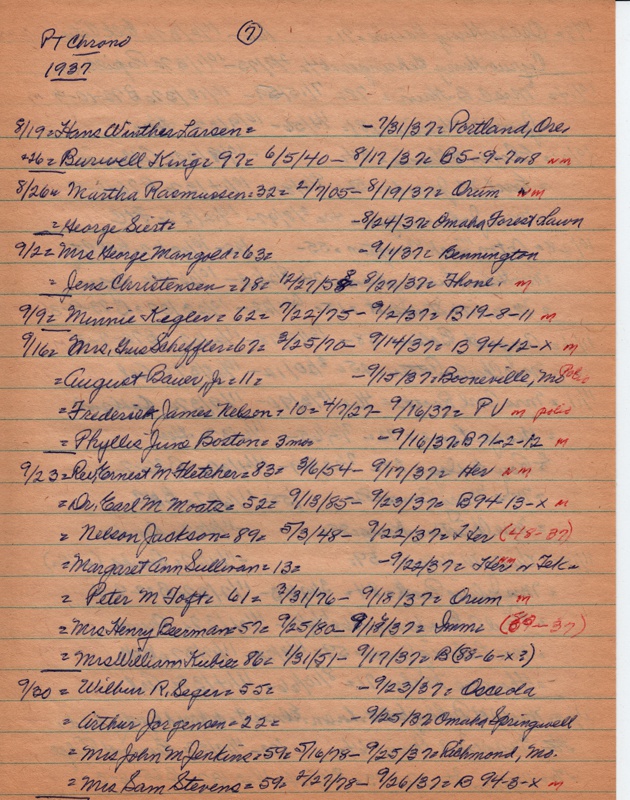 PT Chrono
⑦
1937
8/19 = Hans Winther Larsen = - 7/31/37 = Portland, Ore.
"26 = Burwell King = 97 = 6/5/40 - 8/17/37 = B5-9-7 or 8 nm
8/26 = Martha Rasmussen = 32 = 2/7/05 - 8/19/37 = Orum nm
= George Siert = - 8/24/37 = Omaha Forest Lawn
9/2 = Mrs George Mangold = 63 = - 9/1/37 = Bennington
= Jens Christensen = 78 = 12/27/58 - 8/27/37 = Fhone. m
9/9 = Minnie Kegler = 62 = 7/22/75 - 9/2/37 = B19-8-11 m
9/16 = Mrs, Gus Scheffler = 67 = 3/25/70 - 9/14/37 = B 94-12-x m
= August Bauer, Jr = 11 = - 9/15/37 = Booneville, Mo Polio
= Frederick James Nelson = 10 = 4/7/27 - 9/16/37 = PV m polio
= Phyllis June Boston = 3 mos - 9/16/37 = B71-2-12 m
9/23 = Rev, Ernest M Fletcher = 83 = 3/6/54 - 9/17/37 = Her nm
= Dr, Earl M Moats = 52 = 9/13/85 - 9/23/37 = B94-13-x m
= Nelson Jackson = 89 = 5/3/48 - 9/22/37 = Her (48-37)
= Margaret Ann Sullivan = 13 = - 9/22/37 = Her nm or Tek =
= Peter M Toft = 61 = 3/31/76 - 9/18/37 = Orum m
= Mrs Henry Beerman = 57 = 9/25/80 - 9/18/37 = Imm = (-37)
= Mrs William Kubie = 86 = 1/31/51 - 9/17/37 = B(88-6-x?)
9/30 = Wilbur R. Seger = 55 = - 9/23/37 = Osceola
= Arthur Jorgensen = 22 = - 9/25/37 = Omaha Springwell
= Mrs John M Jenkins = 59 = 5/16/78 - 9/25/37 = Richmond, Mo.
= Mrs Sam Stevens = 59 = 2/27/78 - 9/26/37 = B 94-3-x m